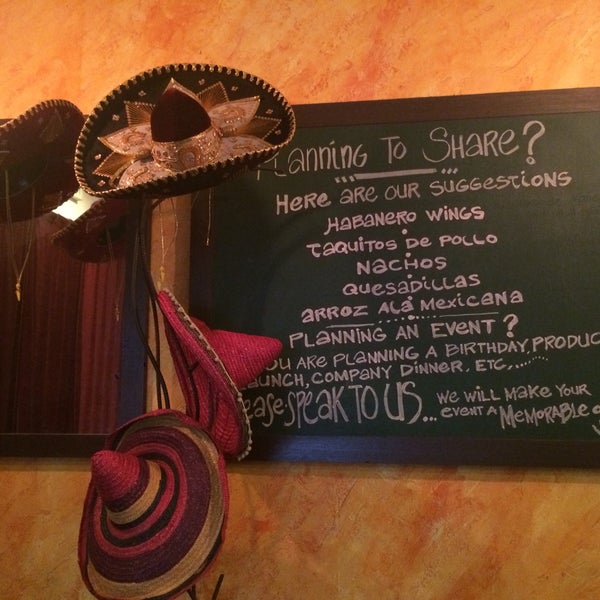 Planning To Share?
Here are our suggestions
Habanero Wings
Taquitos de Pollo
Nachos
Quesadillas
Arroz Ala Mexicana
Planning an Event?
you are planning a Birthday, Produc
launch, Company Dinner, etc,......
ease Speak To Us... we will make your
event a Memorable